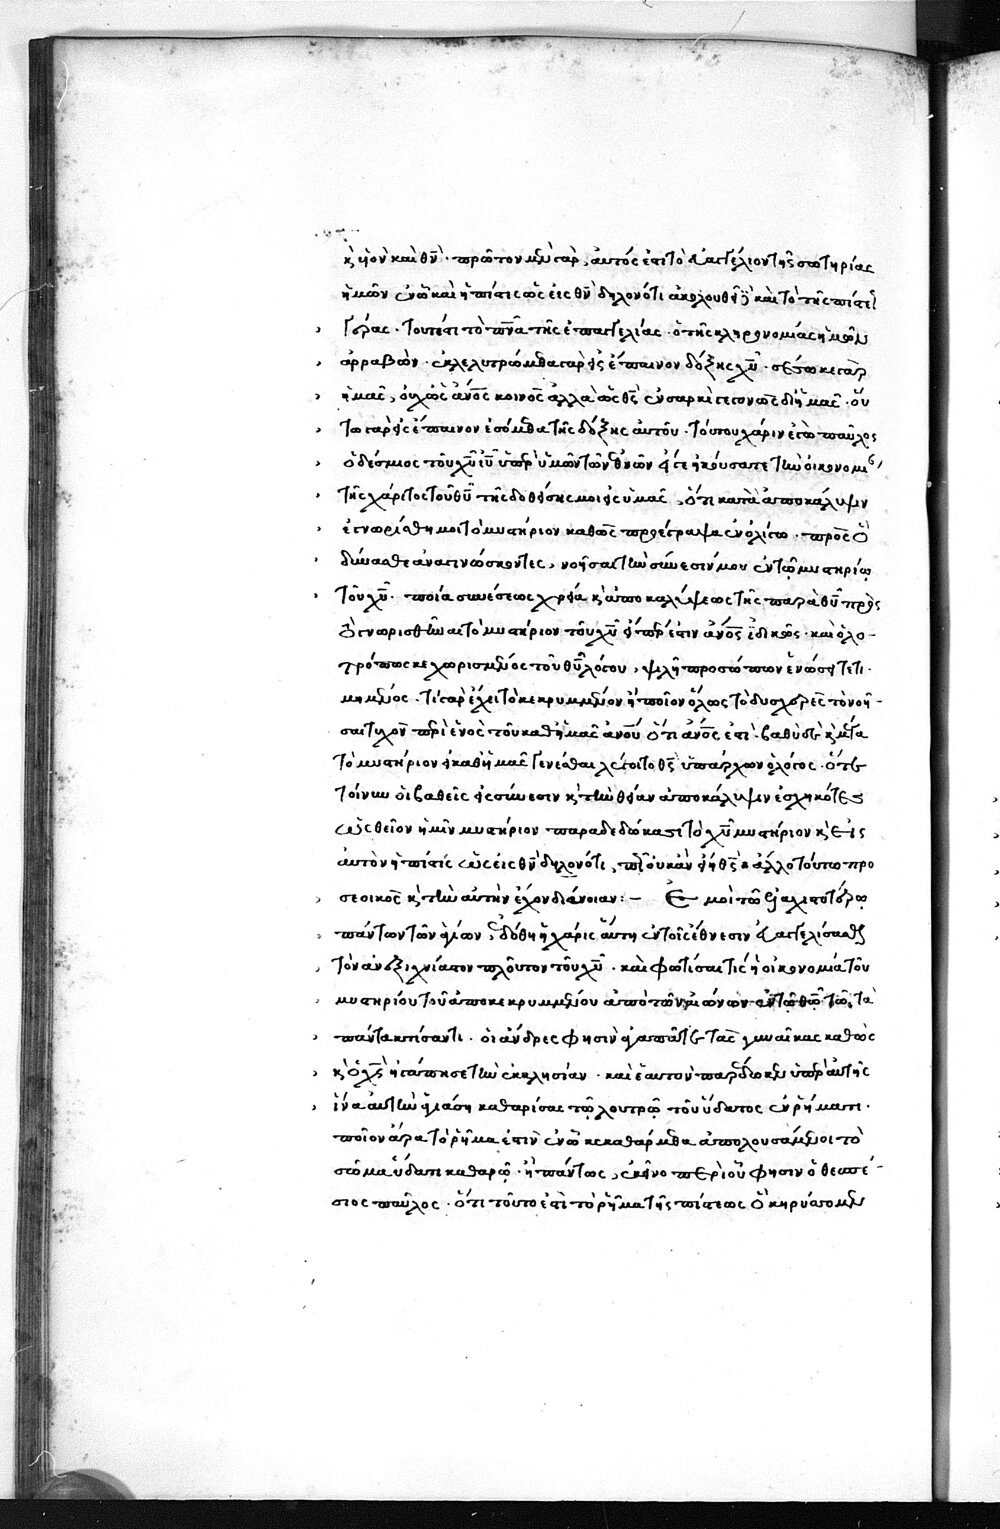 κ υἱὸν καὶ θν̄ · πρῶτον μὲν γὰρ, αὐτός ἐστι τὸ εὐαγγέλιον τῆς σωτηρίας
ἡμῶν ἐν ᾧ καὶ ἡ πίστις ὡς εἰς θν̄ δηλονότι ἀκολουθεῖ καὶ τὸ τῆς πίστεως
γέρας · τουτέστι τὸ πνᾱ τῆς ἐπαγγελίας · ὁ τῆς κληρονομίας ἡμῶν
ἀρραβὼν · ἐκλελυτρώμεθα γὰρ εἰς ἔπαινον δόξης χῡ · σέσωκε γὰρ
ἡμᾶς, οὐχ ὡς ἄνο̄ς κοινὸς ἀλλὰ ὡς θς̄ ἐν σαρκὶ γεγονὼς δι' ἡμᾶς · οὕ
τω γὰρ εἰς ἔπαινον ἐσόμεθα τῆς δόξης αὐτοῦ · τούτου χάριν ἐγὼ παῦλος
ὁ δέσμιος τοῦ χῡ ιῡ ὑπὲρ ὑμῶν τῶν ἐθνῶν εἴγε ἠκούσατε τὴν οἰκονομίαν
τῆς χάριτος τοῦ θῡ τῆς δοθείσης μοι εἰς ὑμᾶς, ὅτι κατὰ ἀποκάλυψιν
ἐγνωρίσθη μοι τὸ μυστήριον καθὼς προέγραψα ἐν ὀλίγω · πρὸς ὃ
δύνασθε ἀναγινώσκοντες, νοῆσαι τὴν σύνεσίν μου ἐν τῶ μυστηρίω
τοῦ χῡ · ποία συνέσεως χρεία κ ἀποκαλύψεως τῆς παρὰ θῡ πρὸς
τὸ γνωρισθῆναι τὸ μυστήριον τοῦ χῡ εἴπερ ἐστιν ἄνο̄ς ἰδικῶς · καὶ ὁλο-
τρόπως κεχωρισμένος τοῦ θῡ λόγου, ψιλῆ προσώπων ἑνώσει τετι-
μημένος · τί γὰρ ἔχει τὸ κεκρυμμένον ἢ ποῖον ὅλως τὸ δυσχερὲς τὸ νοῆ-
σαι τυχὸν περὶ ἑνὸς τοῦ καθ' ἡμᾶς ἀνο̄υ ὅτι ἄνο̄ς ἐστι · βαθὺ δὲ κ μέγα
τὸ μυστήριον εἰ καθ' ἡμᾶς γενέσθαι λέγοιτο θς̄ ὑπάρχων ὁ λόγος · ὅτε
τοίνυν οἱ βαθεῖς εἰς σύνεσιν κ τὴν θείαν ἀποκάλυψιν ἐσχηκότες
ὡς θεῖον ἡμῖν μυστήριον παραδεδώκασι τὸ χῡ μυστήριον κ εἰς
αὐτὸν ἡ πίστις ὡς εἰς θν̄ δηλονότι, πῶς οὐκ ἂν εἴη θς̄ κ ἀλλο τούτω προ
σεοικὸς κ τὴν αὐτὴν ἔχον διάνοιαν : – Ἐμοὶ τῶ ἐλαχιστοτέρω
πάντων τῶν ἁγίων, ἐδόθη ἡ χάρις αὕτη ἐν τοῖς ἔθνεσιν εὐαγγελίσασθαι
τὸν ἀνεξιχνίαστον πλοῦτον τοῦ χῡ · καὶ φωτίσαι τίς ἡ οἰκονομία τοῦ
μυστηρίου τοῦ ἀποκεκρυμμένου ἀπὸ τῶν αἰώνων ἐν τῶ θῶ τῶ τὰ
πάντα κτίσαντι · οἱ ἄνδρες φησὶν ἀγαπᾶτε τὰς γυναῖκας καθὼς
κ ὁ χς̄ ἠγάπησε τὴν ἐκκλησίαν · καὶ ἑαυτὸν παρέδωκεν ὑπὲρ αὐτῆς
ἵνα αὐτὴν ἁγιάση καθαρίσας τῶ λουτρῶ τοῦ ὕδατος ἐν ῥήματι ·
ποῖον ἄρα τὸ ῥῆμα ἐστὶν ἐν ᾧ κεκαθάρμεθα ἀπολουσάμενοι τὸ
σῶμα ὕδατι καθαρῶ · ἢ πάντως, ἐκεῖνο περὶ οὗ φησιν ὁ θεσπέ-
σιος παῦλος · ὅτι τοῦτο ἐστὶ τὸ ῥῆμα τῆς πίστεως ὃ κηρύσσομεν